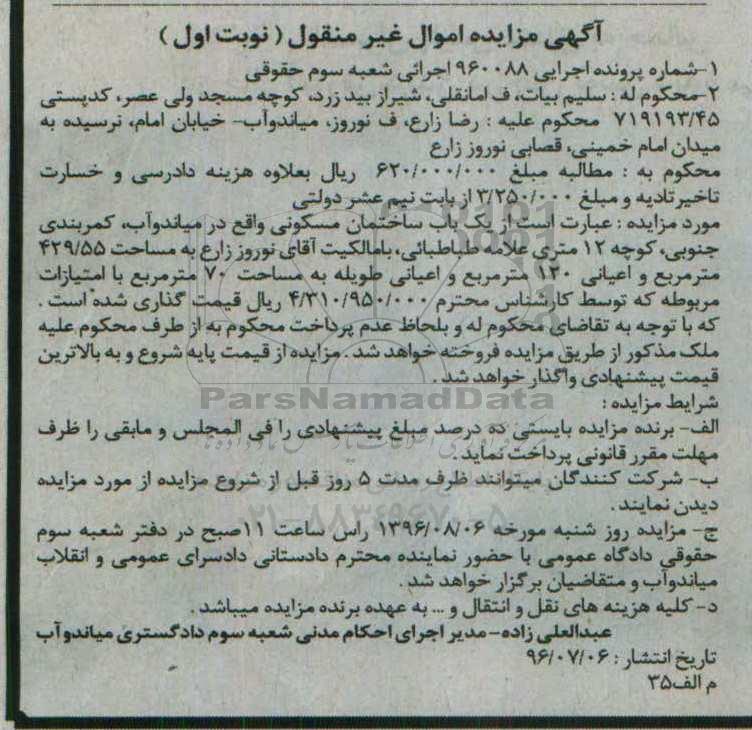 آگهی مزایده اموال غیر منقول ( نوبت اول )
۱-شماره پرونده اجرایی ۹۶۰۰۸۸ اجرائی شعبه سوم حقوقی
۲-محکوم له : سلیم بیات، ف امانقلی، شیراز بید زرد، کوچه مسجد ولی عصر، کدپستی
۷۱۹۱۹۳/۴۵ محکوم علیه : رضا زارع، ف نوروز، میاندوآب- خیابان امام، نرسیده به
میدان امام خمینی، قصابی نوروز زارع
محکوم به : مطالبه مبلغ ۶۲۰/۰۰۰/۰۰۰ ریال بعلاوه هزینه دادرسی و خسارت
تاخیرتادیه و مبلغ ۳/۲۵۰/۰۰۰ از بابت نیم عشر دولتی
مورد مزایده : عبارت است از یک باب ساختمان مسکونی واقع در میاندوآب، کمربندی
جنوبی، کوچه ۱۲ متری علامه طباطبائی، بامالکیت آقای نوروز زارع به مساحت ۴۲۹/۵۵
مترمربع و اعیانی ۱۲۰ مترمربع و اعیانی طویله به مساحت ۷۰ مترمربع با امتیازات
مربوطه که توسط کارشناس محترم ۴/۳۱۰/۹۵۰/۰۰۰ ریال قیمت گذاری شده است .
که با توجه به تقاضای محکوم له و بلحاظ عدم پرداخت محکوم به از طرف محکوم علیه
ملک مذکور از طریق مزایده فروخته خواهد شد . مزایده از قیمت پایه شروع و به بالاترین
قیمت پیشنهادی واگذار خواهد شد .
ParsNamadData
شرایط مزایده :
الف- برنده مزایده بایستی ده درصد مبلغ پیشنهادی را فی المجلس و مابقی را ظرف
مهلت مقرر قانونی پرداخت نماید .
ب- شرکت کنندگان میتوانند ظرف مدت ۵ روز قبل از شروع مزایده از مورد مزایده
دیدن نمایند .
ج- مزایده روز شنبه مورخه ۱۳۹۶/۰۸/۰۶ راس ساعت ۱۱صبح در دفتر شعبه سوم
حقوقی دادگاه عمومی با حضور نماینده محترم دادستانی دادسرای عمومی و انقلاب
میاندوآب و متقاضیان برگزار خواهد شد .
د- کلیه هزینه های نقل و انتقال و ... به عهده برنده مزایده میباشد .
عبدالعلی زاده-مدیر اجرای احکام مدنی شعبه سوم دادگستری میاندوآب
تاریخ انتشار : ۹۶/۰۷/۰۶
م الف۳۵